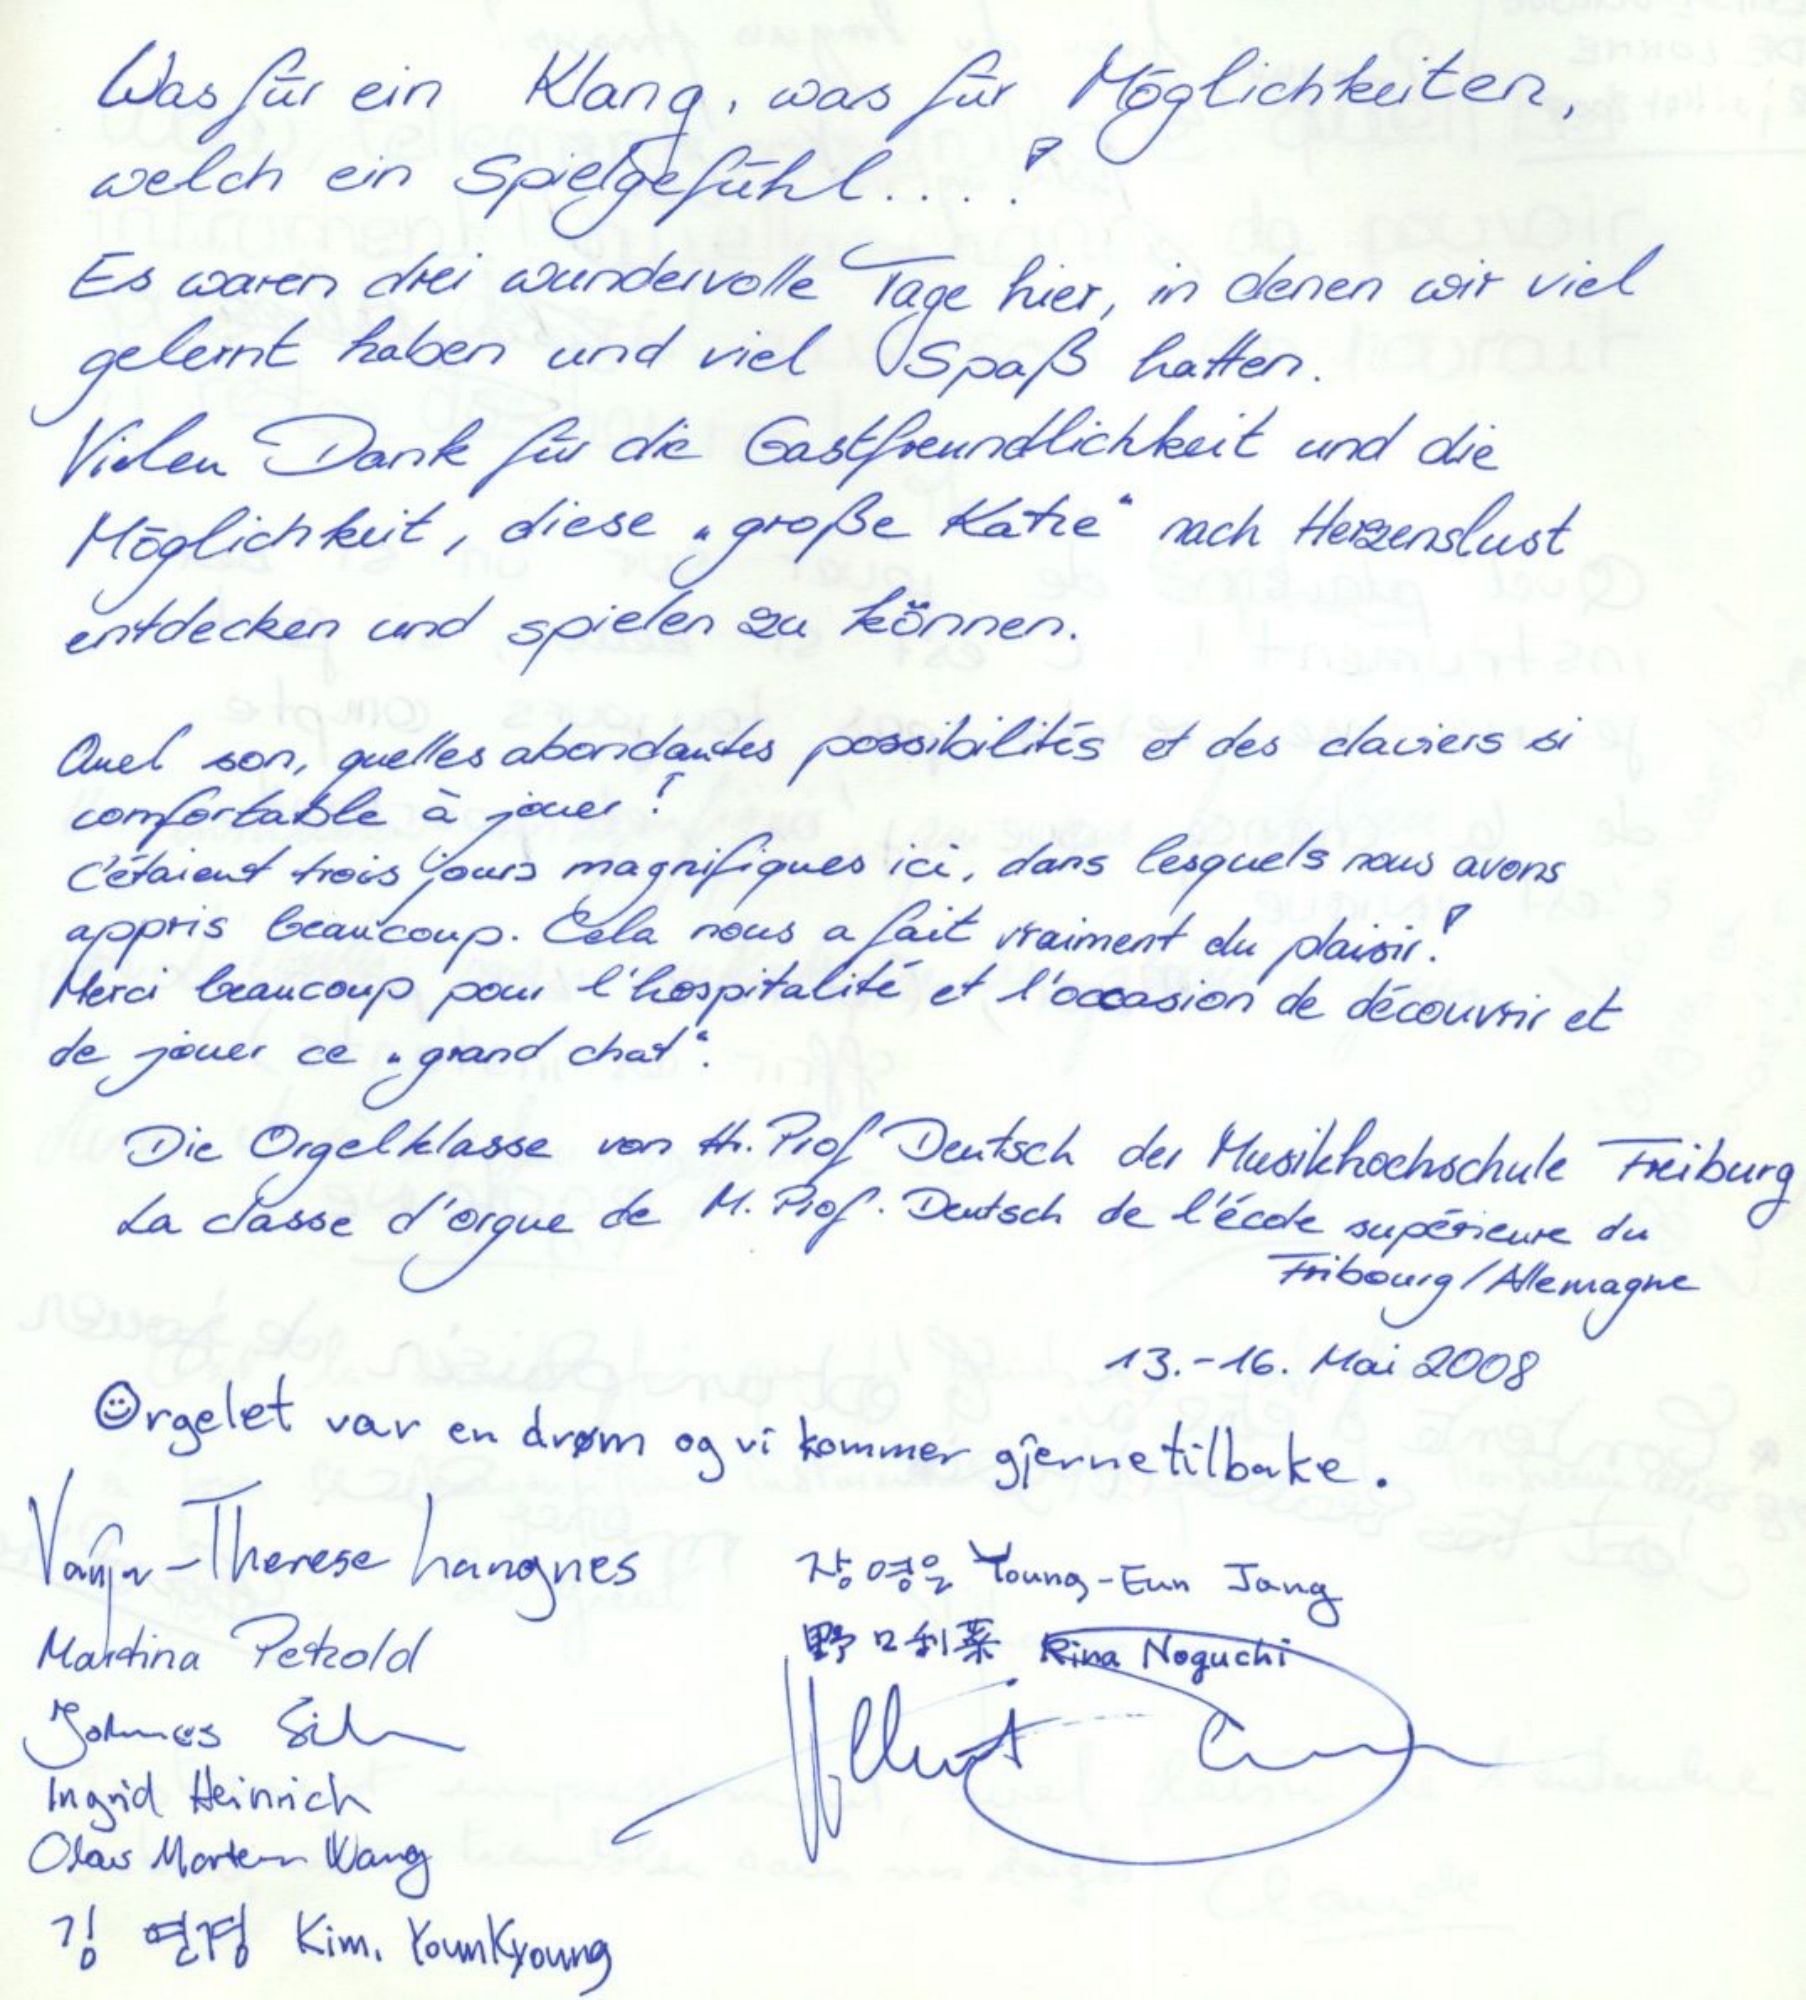 Was für ein Klang, was für Möglichkeiten,
welch ein Spielgefühl....!
Es waren drei wundervolle Tage hier, in denen wir viel
gelernt haben und viel Spaß hatten.
Vielen Dank für die Gastfreundlichkeit und die
Möglichkeit, diese „große Katze“ nach Herzenslust
entdecken und spielen zu können.
Quel son, quelles abondantes possibilités et des claviers si
comfortable à jouer!
C'étaient trois jours magnifiques ici, dans lesquels nous avons
appris beaucoup. Cela nous a fait vraiment du plaisir!
Merci beaucoup pour l'hospitalité et l'occasion de découvrir et
de jouer ce „grand chat“.
Die Orgelklasse von Hr. Prof Deutsch der Musikhochschule Freiburg
La classe d'orgue de M. Prof. Deutsch de l'école supérieure du
Fribourg/Allemagne
13.-16. Mai 2008
Orgelet var en drøm og vi kommer gjerne tilbake.
Vanja-Therese Langnes
장영은 Young-Eun Jang
Martina Petzold
野口利菜 Rina Noguchi
Johannes
Ingrid Heinrich
Olav Morten Wang
김 연경 Kim, YounKyoung